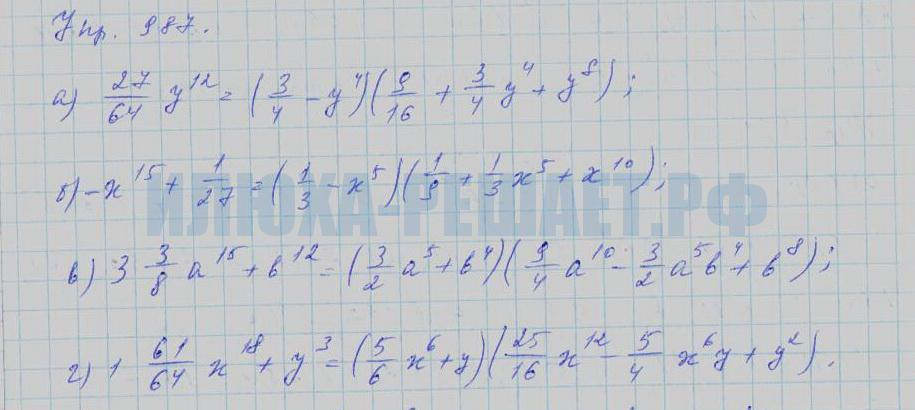 Упр. 987.
а) 27/64 y¹² = (3/4 − y⁴)(9/16 + 3/4 y⁴ + y⁸);
б) −x¹⁵ + 1/27 = (1/3 − x⁵)(1/9 + 1/3 x⁵ + x¹⁰);
ИЛЮХА-РЕШАЕТ.РФ
в) 3 3/8 a¹⁵ + b¹² = (3/2 a⁵ + b⁴)(9/4 a¹⁰ − 3/2 a⁵b⁴ + b⁸);
г) 1 61/64 x¹⁸ + y³ = (5/6 x⁶ + y)(25/16 x¹² − 5/4 x⁶y + y²).